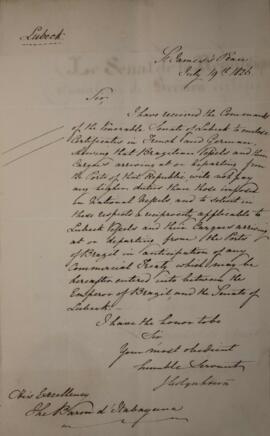 Lubeck
St James's Place
July 19th 1826
Sir,
I have received the Commands
of the Honorable Senate of Lubeck to enclose
Certificates in French and German
shewing that Brazilian Vessels and their
Cargoes arriving at or departing from
the Ports of that Republic will not pay
any higher duties than those imposed
on National Vessels and to solicit in
these respects a reciprocity applicable to
Lubeck Vessels and their Cargoes arriving
at or departing from the Ports
of Brazil in anticipation of any
Commercial Treaty which may be
hereafter entered into between the
Emperor of Brazil and the Senate of
Lubeck.
I have the honor to be
Sir
Your most obedient
humble Servant
His Excellency
The Baron d' Itabayana